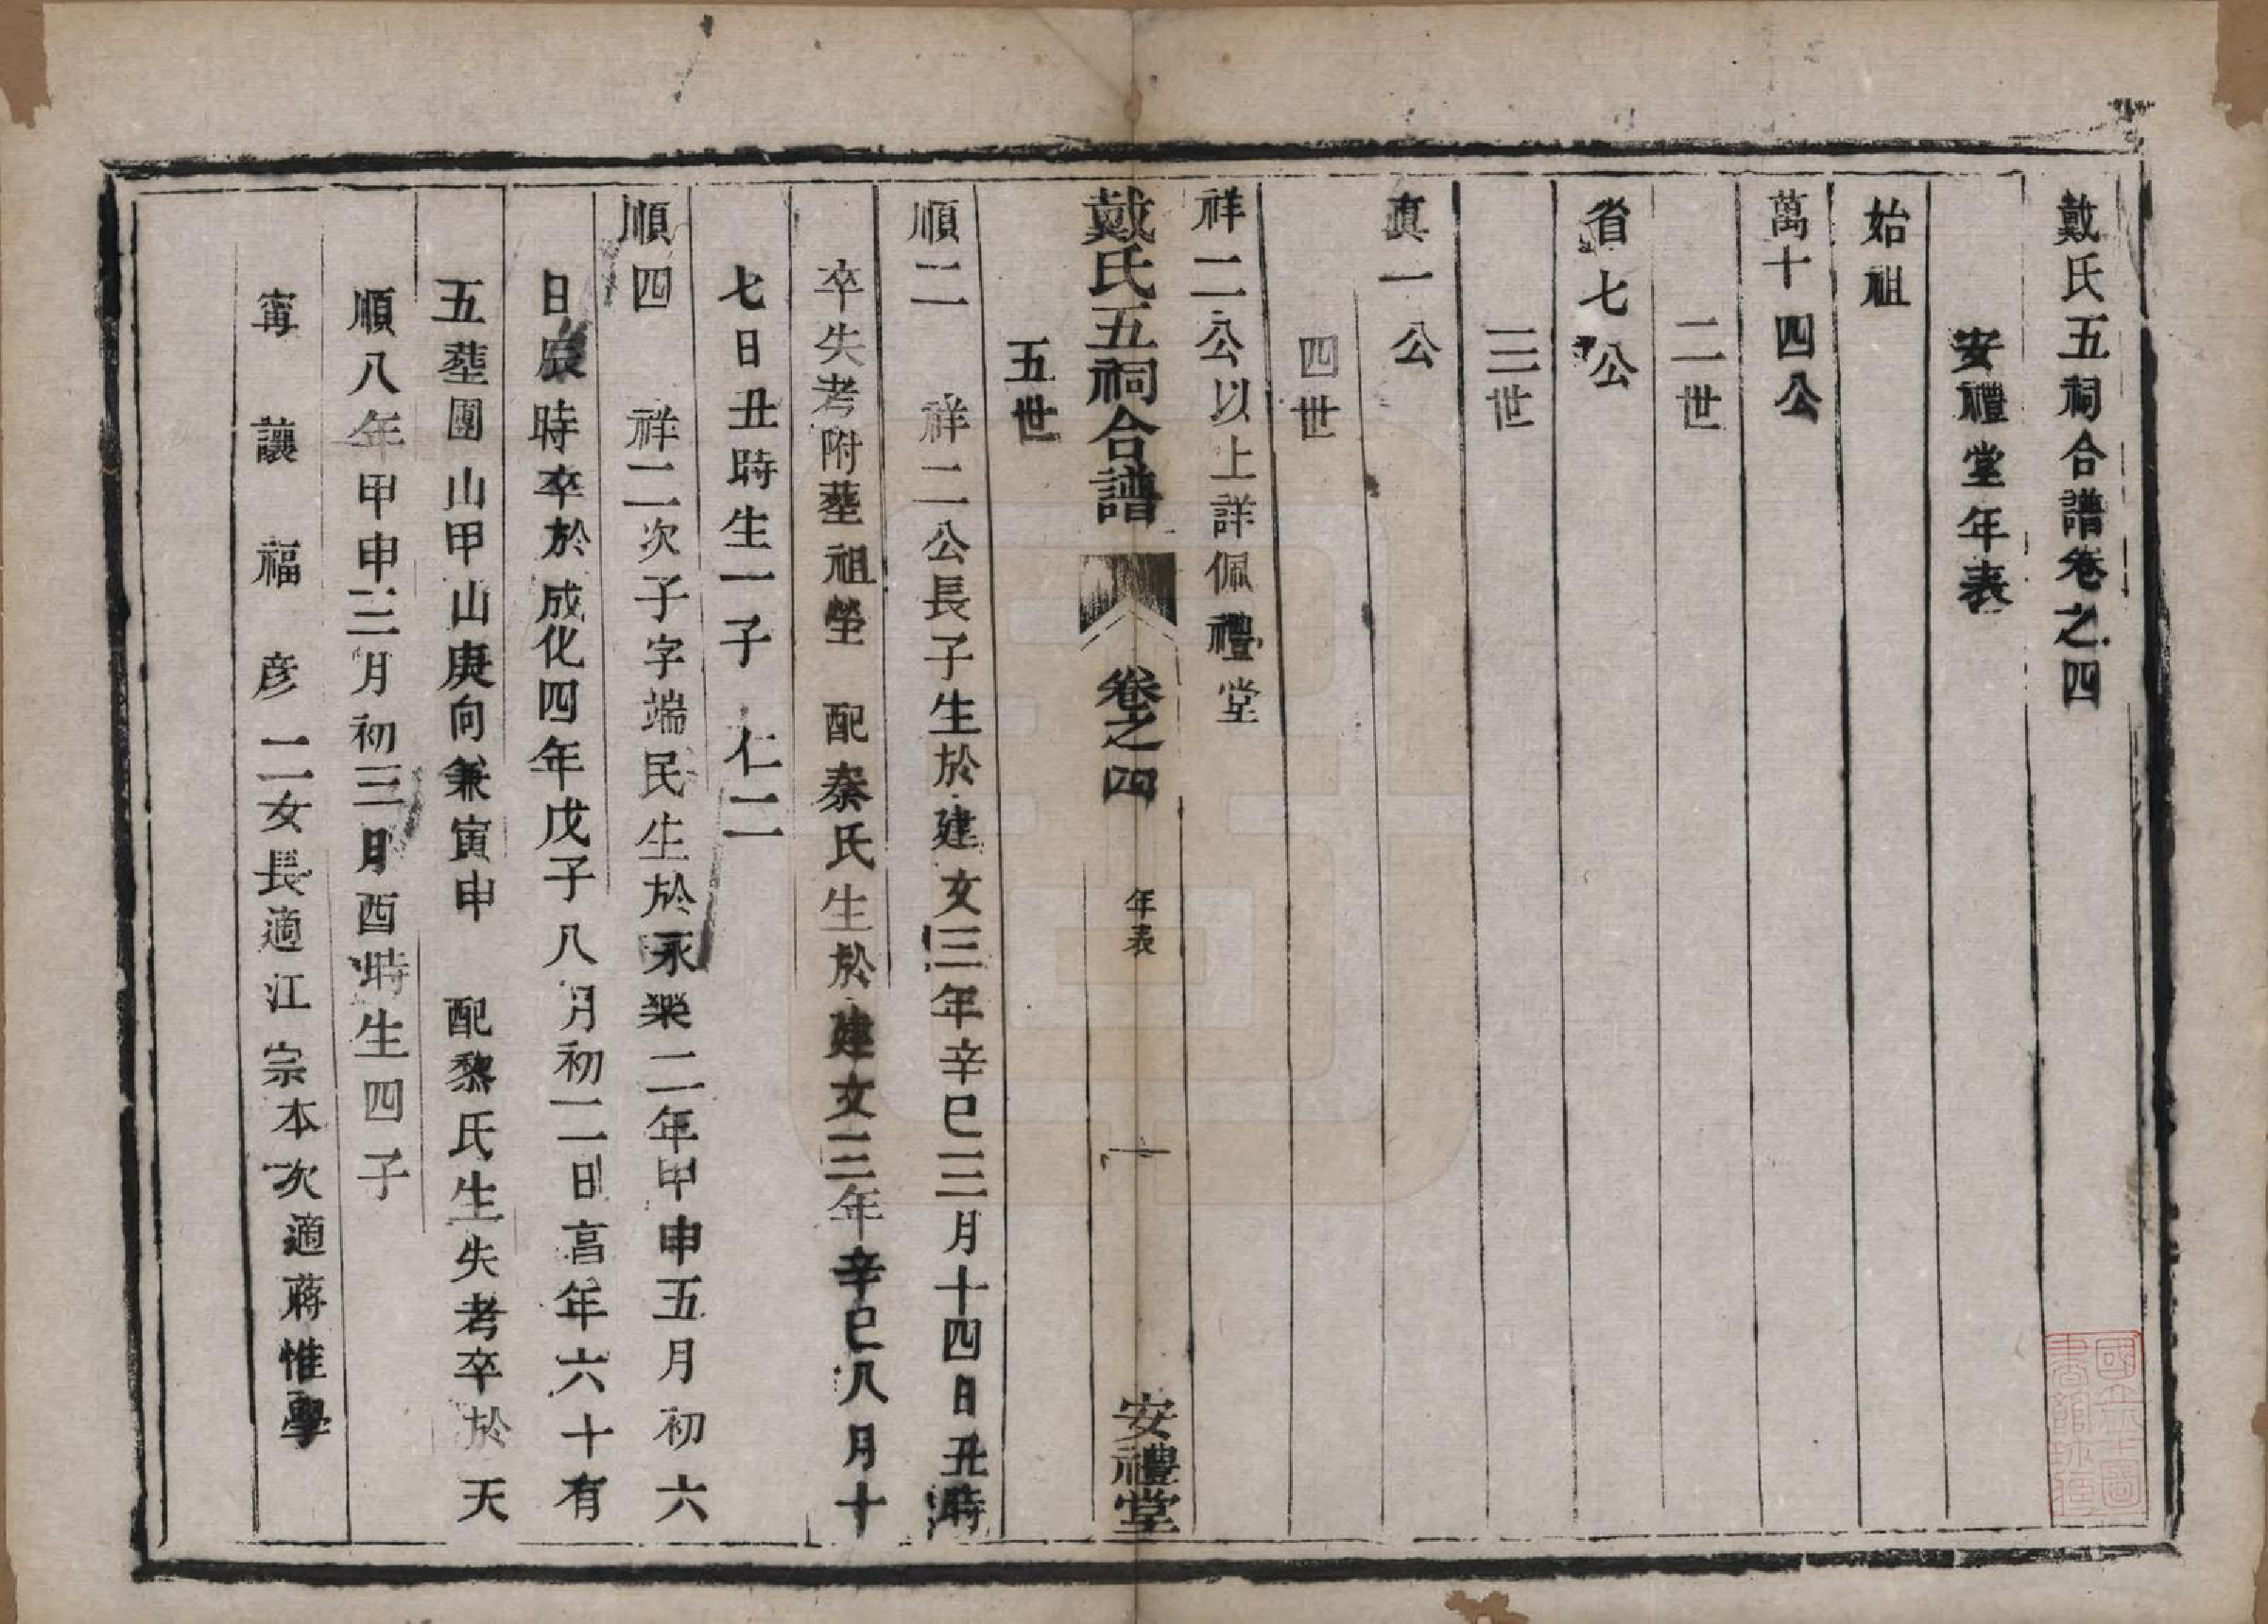 戴氏五祠合譜卷之四
安禮堂年表
始祖
萬十四公
二世
省七公
三世
真一公
四世
祥二公以上詳佩禮堂
戴氏五祠合譜 卷之四 年表 一 安禮堂
五世
順二 祥二公長子生於建文三年辛巳三月十四日丑時
卒失考附塟祖塋 配秦氏生於建文三年辛巳八月十
七日丑時生一子 仁二
順四 祥二次子字端民生於永樂二年甲申五月初六
日辰時卒於成化四年戊子八月初二日亯年六十有
五塟團山甲山庚向兼寅申 配黎氏生失考卒於天
順八年甲申三月初三月酉時生四子
寗 讓 福 彦 二女長適江宗本次適蔣惟學
國立北平圖書館珍藏